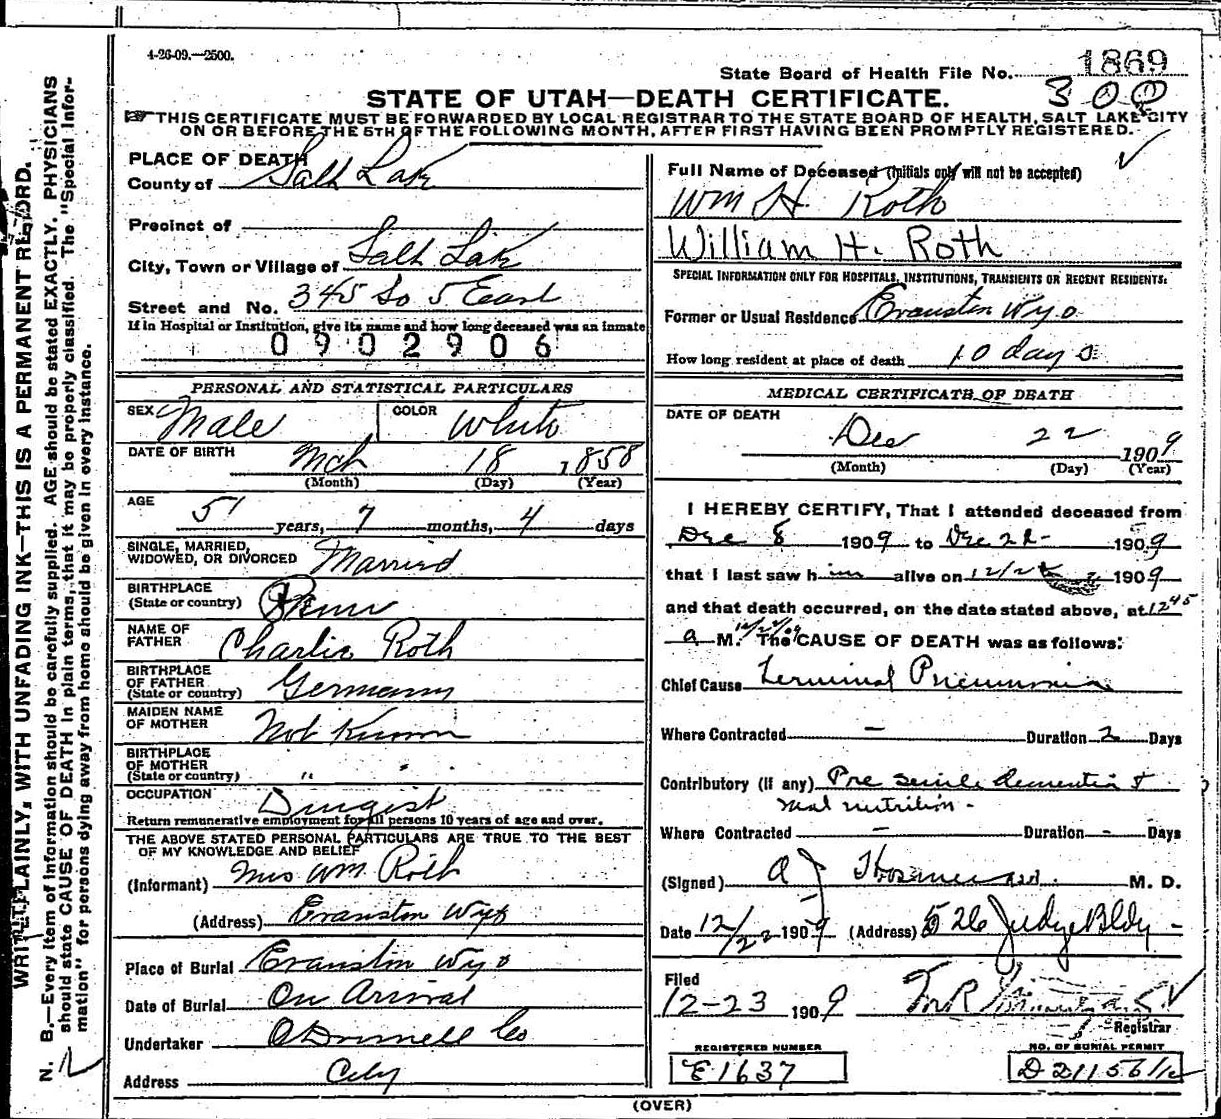 4-26-09.—2500.
State Board of Health File No. 1869
300
STATE OF UTAH—DEATH CERTIFICATE.
THIS CERTIFICATE MUST BE FORWARDED BY LOCAL REGISTRAR TO THE STATE BOARD OF HEALTH, SALT LAKE CITY
ON OR BEFORE THE 5TH OF THE FOLLOWING MONTH, AFTER FIRST HAVING BEEN PROMPTLY REGISTERED.
WRITE PLAINLY, WITH UNFADING INK—THIS IS A PERMANENT RECORD.
N. B.—Every item of information should be carefully supplied. AGE should be stated EXACTLY. PHYSICIANS
should state CAUSE OF DEATH in plain terms, that it may be properly classified. The "Special Infor-
mation" for persons dying away from home should be given in every instance.
PLACE OF DEATH
County of Salt Lake
Precinct of
City, Town or Village of Salt Lake
Street and No. 345 So 5 East
If in Hospital or Institution, give its name and how long deceased was an inmate
0902906
PERSONAL AND STATISTICAL PARTICULARS
SEX Male COLOR White
DATE OF BIRTH Mch 18 1858
(Month) (Day) (Year)
AGE 51 years, 7 months, 4 days
SINGLE, MARRIED,
WIDOWED, OR DIVORCED Married
BIRTHPLACE
(State or country) Penn
NAME OF
FATHER Charlie Roth
BIRTHPLACE
OF FATHER
(State or country) Germany
MAIDEN NAME
OF MOTHER Not Known
BIRTHPLACE
OF MOTHER
(State or country) " "
OCCUPATION Druggist
Return remunerative employment for all persons 10 years of age and over.
THE ABOVE STATED PERSONAL PARTICULARS ARE TRUE TO THE BEST
OF MY KNOWLEDGE AND BELIEF
(Informant) Mrs Wm. Roth
(Address) Evanston Wyo
Place of Burial Evanston Wyo
Date of Burial On Arrival
Undertaker O'Donnell Co
Address City
Full Name of Deceased (Initials only will not be accepted)
Wm H Roth
William H. Roth
SPECIAL INFORMATION ONLY FOR HOSPITALS, INSTITUTIONS, TRANSIENTS OR RECENT RESIDENTS:
Former or Usual Residence Evanston Wyo
How long resident at place of death 10 days
MEDICAL CERTIFICATE OF DEATH
DATE OF DEATH
Dec 22 1909
(Month) (Day) (Year)
I HEREBY CERTIFY, That I attended deceased from
Dec 8 1909 to Dec 22 1909
that I last saw him alive on 12/22 1909
and that death occurred, on the date stated above, at 12 45
a M. The CAUSE OF DEATH was as follows:
Chief Cause Terminal Pneumonia
Where Contracted — Duration 2 Days
Contributory (if any) Pre senile dementia &
mal nutrition -
Where Contracted — Duration - Days
(Signed) A J Hosmer M. D.
Date 12/22 1909 (Address) 526 Judge Bldg -
Filed
12-23 1909
Registrar
REGISTERED NUMBER
E1637
NO. OF BURIAL PERMIT
D 21156
(OVER)